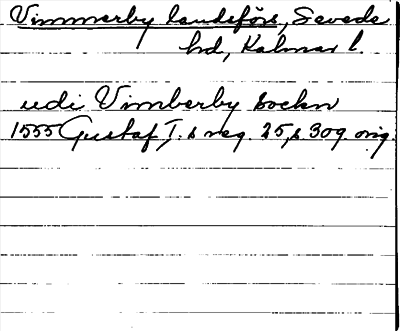 Vimmerby landsförs, Sevede
hd, Kalmar l.
udi Vimberby sockn
1555 Gustaf I:s reg. 25, s 309 orig.